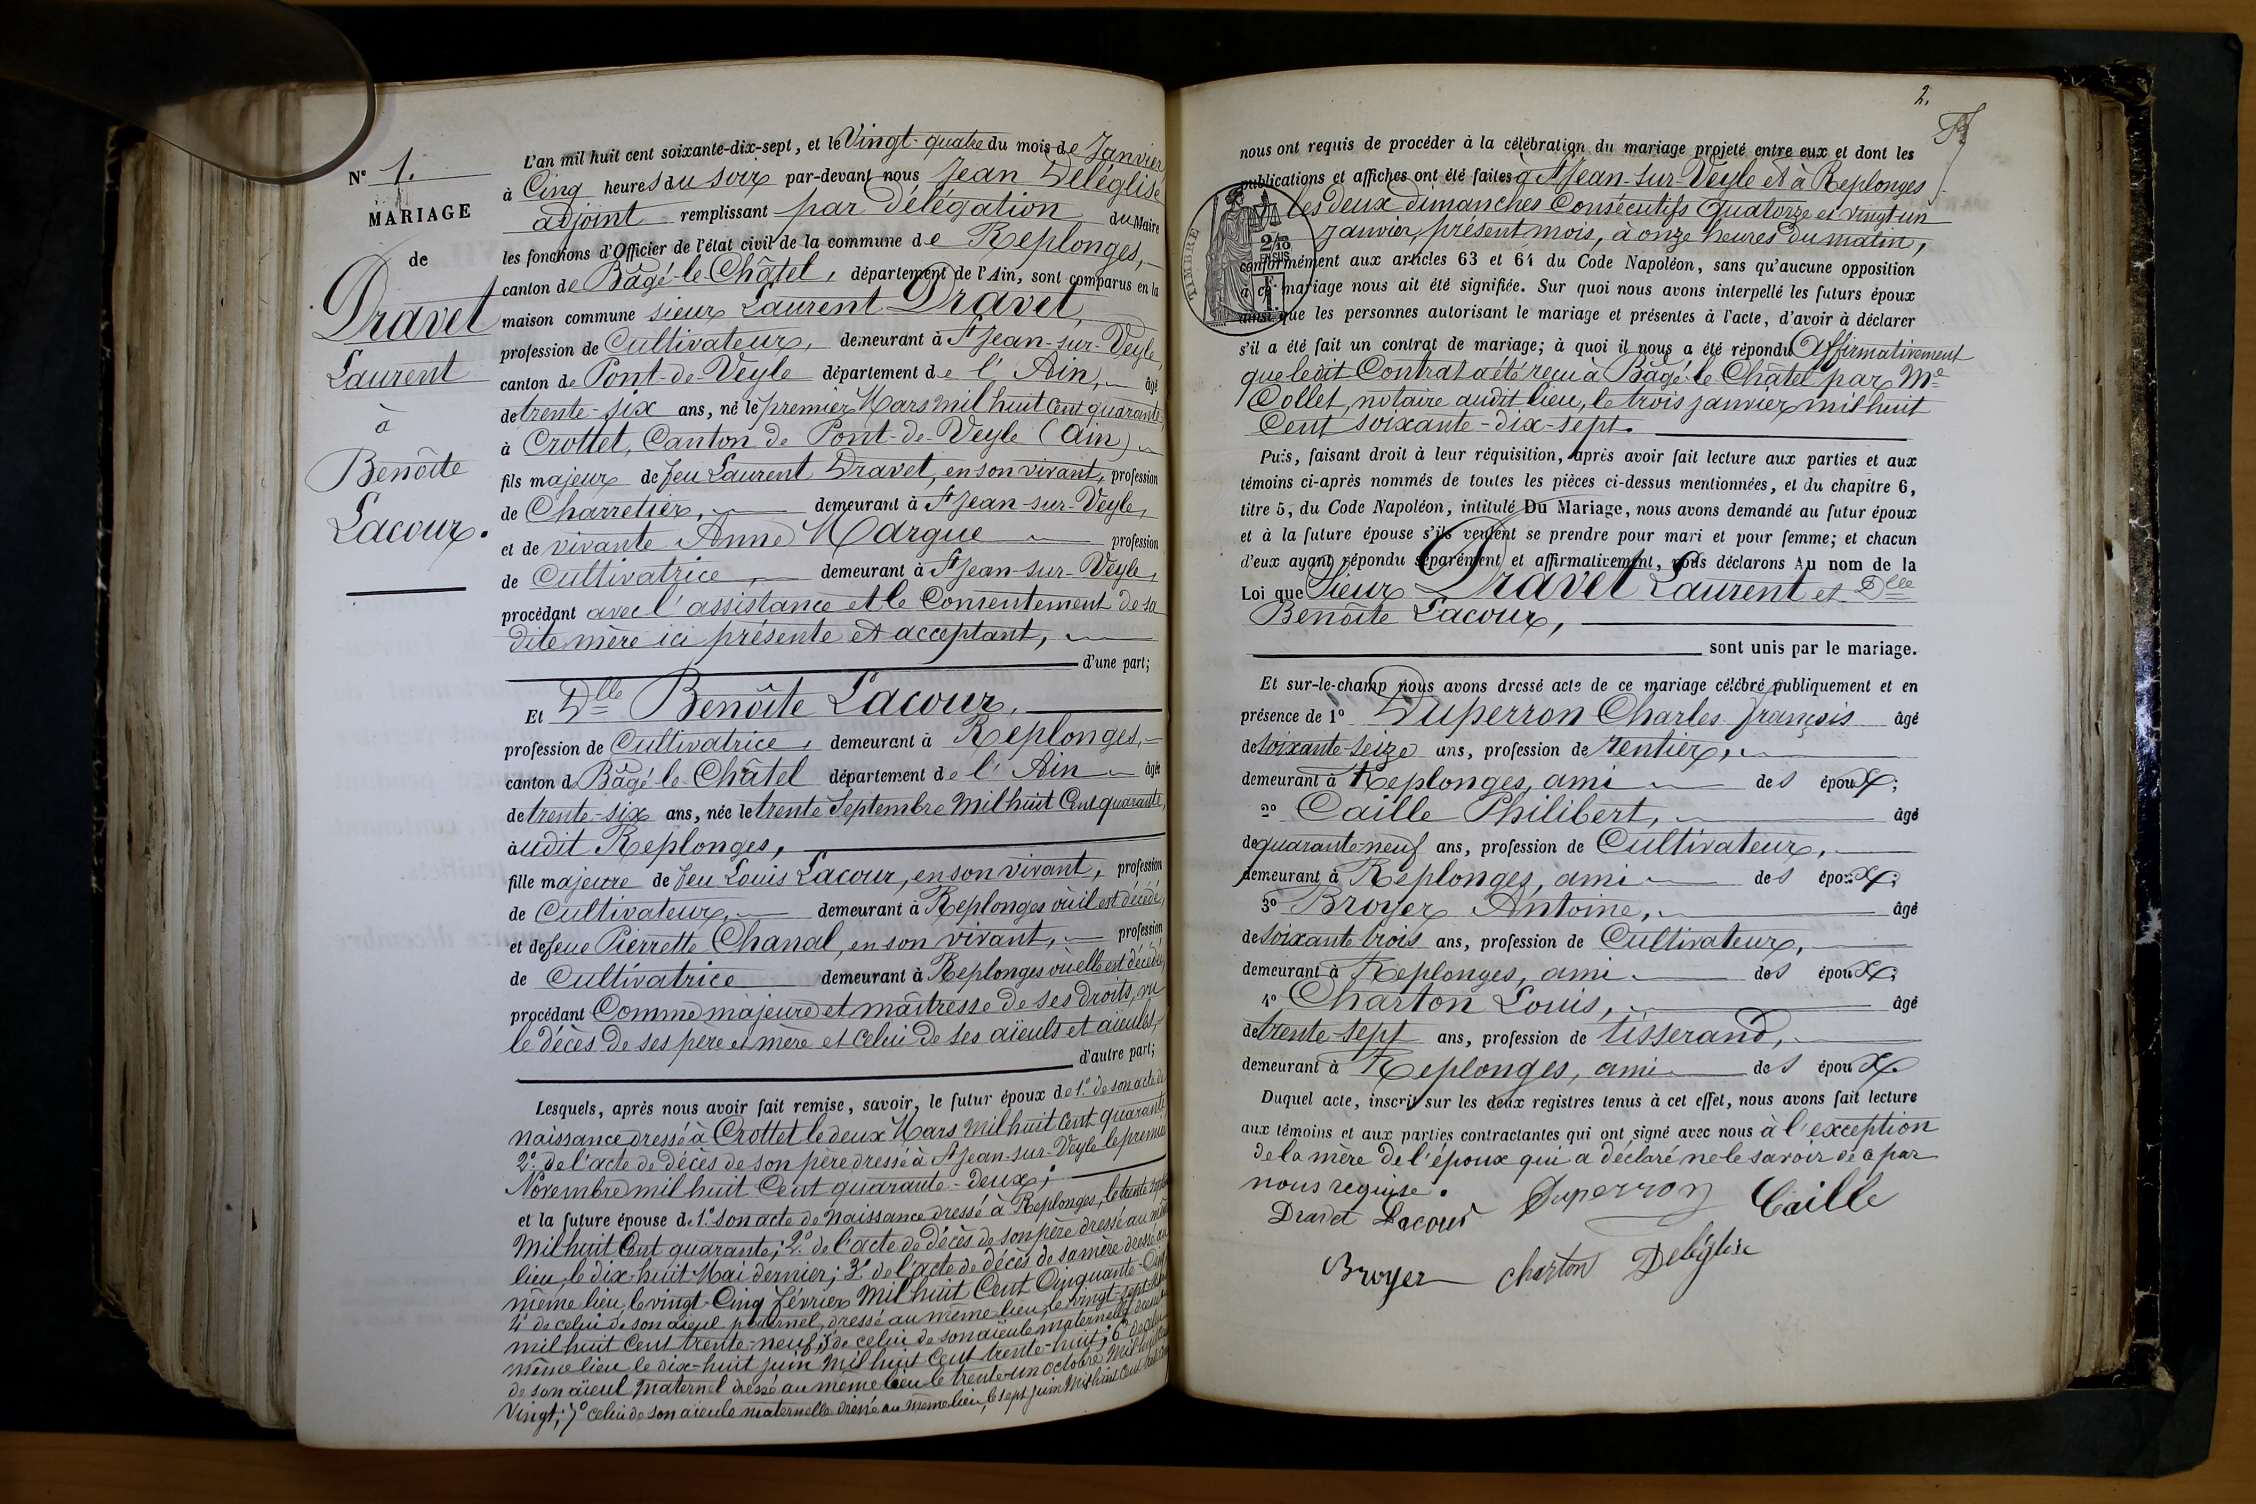 N° 1.
MARIAGE
de
Dravet
Laurent
à
Benoîte
Lacour.
L'an mil huit cent soixante-dix-sept, et le Vingt-quatre du mois de Janvier
à Cinq heures du soir par-devant nous Jean Deléglise
adjoint remplissant par délégation du Maire
les fonctions d'Officier de l'état civil de la commune de Replonges,
canton de Bâgé-le-Châtel, département de l'Ain, sont comparus en la
maison commune sieur Laurent Dravet,
profession de Cultivateur, demeurant à St Jean-sur-Veyle,
canton de Pont-de-Veyle département de l'Ain, âgé
de trente-six ans, né le premier Mars mil huit Cent quarante,
à Crottet, Canton de Pont-de-Veyle (Ain)
fils majeur de feu Laurent Dravet, en son vivant, profession
de Charretier, demeurant à St Jean-sur-Veyle,
et de vivante Anne Margue profession
de Cultivatrice, demeurant à St Jean-sur-Veyle,
procédant avec l'assistance et le Consentement de sa
dite mère ici présente et acceptant,
d'une part;
Et Dlle Benoîte Lacour,
profession de Cultivatrice, demeurant à Replonges,
canton de Bâgé-le-Châtel département de l'Ain âgée
de trente-six ans, née le trente Septembre Mil huit Cent quarante,
audit Replonges,
fille majeure de feu Louis Lacour, en son vivant, profession
de Cultivateur, demeurant à Replonges où il est décédé,
et de feue Pierrette Chanal, en son vivant, profession
de Cultivatrice demeurant à Replonges où elle est décédée,
procédant Comme majeure et maîtresse de ses droits, vu
le décès de ses père et mère et celui de ses aïeuls et aïeules,
d'autre part;
Lesquels, après nous avoir fait remise, savoir, le futur époux de 1° de son acte de
Naissance dressé à Crottet le deux Mars Mil huit Cent quarante
2° de l'acte de décès de son père dressé à St Jean-sur-Veyle le premier
Novembre mil huit Cent quarante-deux;
et la future épouse de 1° son acte de Naissance dressé à Replonges, le trente
Mil huit Cent quarante; 2° de l'acte de décès de son père dressé au même
lieu, le dix-huit Mai dernier; 3° de l'acte de décès de sa mère dressé au
même lieu, le vingt-Cinq février Mil huit Cent Cinquante-
4° de celui de son aïeul paternel, dressé au même lieu, le vingt-sept
mil huit Cent trente-neuf; 5° de celui de son aïeule maternelle
même lieu le dix-huit juin Mil huit Cent trente-huit; 6° de celui
de son aïeul maternel dressé au même lieu le trente-un octobre Mil huit Cent
Vingt; 7° celui de son aïeule maternelle dressé au même lieu, le sept juin Mil huit Cent
2.
nous ont requis de procéder à la célébration du mariage projeté entre eux et dont les
publications et affiches ont été faites à St Jean-sur-Veyle et à Replonges
les deux dimanches Consécutifs Quatorze et vingt un
janvier, présent mois, à onze heures du matin,
TIMBRE
2/10
EN SUS
conformément aux articles 63 et 64 du Code Napoléon, sans qu'aucune opposition
à ce mariage nous ait été signifiée. Sur quoi nous avons interpellé les futurs époux
ainsi que les personnes autorisant le mariage et présentes à l'acte, d'avoir à déclarer
s'il a été fait un contrat de mariage; à quoi il nous a été répondu Affirmativement
que ledit Contrat a été reçu à Bâgé-le-Châtel par Me
Collet, notaire audit lieu, le trois janvier mil huit
Cent soixante-dix-sept.
Puis, faisant droit à leur réquisition, après avoir fait lecture aux parties et aux
témoins ci-après nommés de toutes les pièces ci-dessus mentionnées, et du chapitre 6,
titre 5, du Code Napoléon, intitulé Du Mariage, nous avons demandé au futur époux
et à la future épouse s'ils veulent se prendre pour mari et pour femme; et chacun
d'eux ayant répondu séparément et affirmativement, nous déclarons Au nom de la
Loi que Sieur Dravet Laurent et Dlle
Benoîte Lacour,
sont unis par le mariage.
Et sur-le-champ nous avons dressé acte de ce mariage célébré publiquement et en
présence de 1° Duperron Charles François âgé
de soixante-seize ans, profession de rentier,
demeurant à Replonges, ami des époux;
2° Caille Philibert, âgé
de quarante-neuf ans, profession de Cultivateur,
demeurant à Replonges, ami des époux;
3° Broyer Antoine, âgé
de soixante trois ans, profession de Cultivateur,
demeurant à Replonges, ami des époux;
4° Charton Louis, âgé
de trente-sept ans, profession de tisserand,
demeurant à Replonges, ami des époux.
Duquel acte, inscrit sur les deux registres tenus à cet effet, nous avons fait lecture
aux témoins et aux parties contractantes qui ont signé avec nous à l'exception
de la mère de l'époux qui a déclaré ne le savoir de ce par
nous requise.
Duperron Caille
Dravet Lacour
Broyer Charton Deléglise